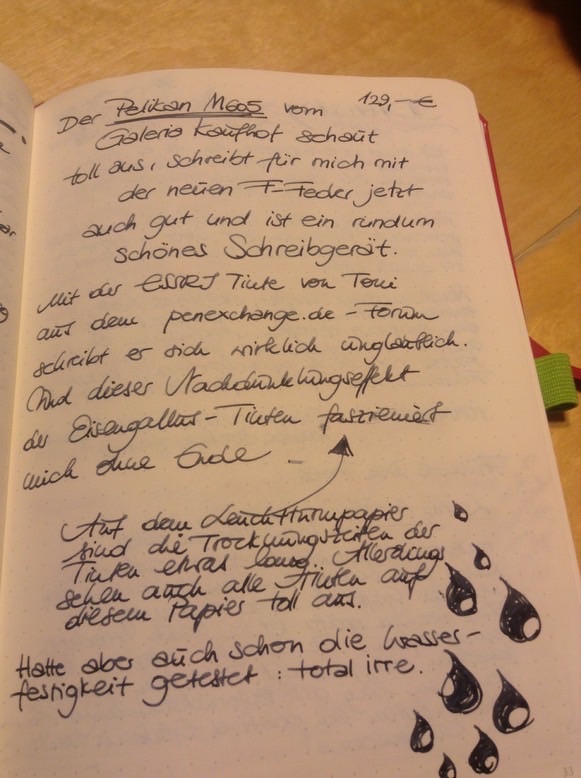 129,-€
Der Pelikan M605 vom
Galeria Kaufhof schaut
toll aus, schreibt für mich mit
der neuen F-Feder jetzt
auch gut und ist ein rundum
schönes Schreibgerät.
Mit der ESSRI Tinte von Toni
aus dem penexchange.de - Forum
schreibt er sich wirklich unglaublich.
Und dieser Nachdunklungseffekt
der Eisengallus-Tinten faszieniert
mich ohne Ende
Auf dem Leuchtturmpapier
sind die Trocknungszeiten der
Tinten etwas lang. Allerdings
sehen auch alle Tinten auf
diesem Papier toll aus.
Hatte aber auch schon die Wasser-
festigkeit getestet: total irre.